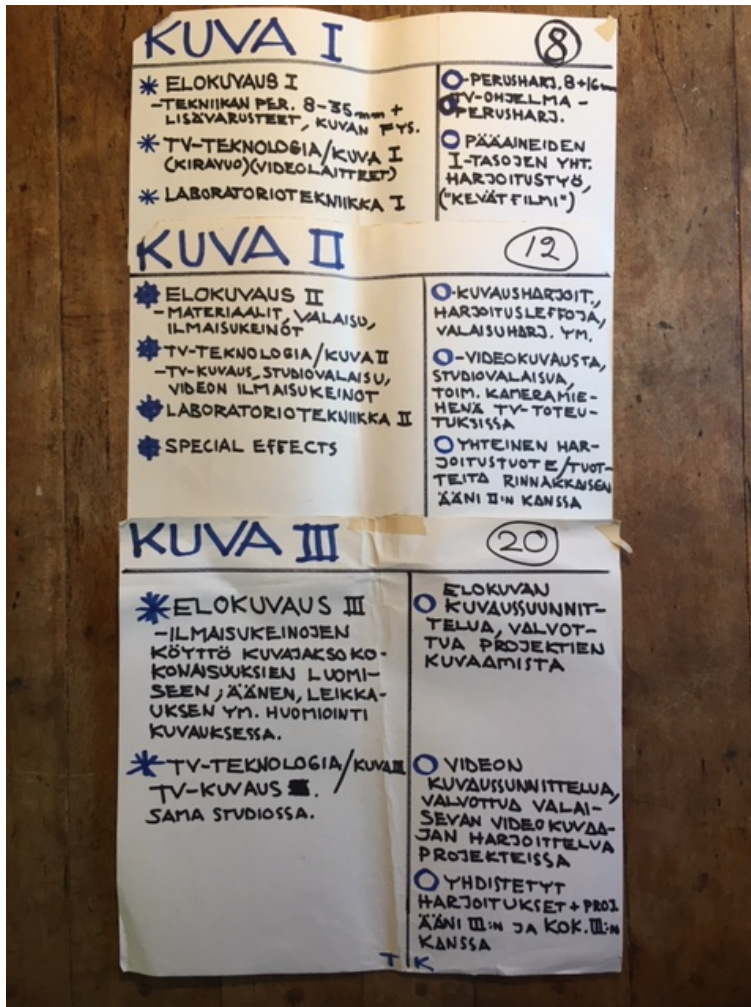 KUVA I
8
* ELOKUVAUS I
-TEKNIIKAN PER. 8-35mm +
LISÄVARUSTEET, KUVAN FYS.
* TV-TEKNOLOGIA/KUVA I
(KIRAVUO)(VIDEOLAITTEET)
* LABORATORIOTEKNIIKKA I
O-PERUSHARJ. 8+16mm
TV-OHJELMA-
PERUSHARJ.
O PÄÄAINEIDEN
I-TASOJEN YHT.
HARJOITUSTYÖ,
("KEVÄTFILMI")
KUVA II
12
* ELOKUVAUS II
-MATERIAALIT, VALAISU,
ILMAISUKEINOT
* TV-TEKNOLOGIA/KUVA II
-TV-KUVAUS, STUDIOVALAISU,
VIDEON ILMAISUKEINOT
* LABORATORIOTEKNIIKKA II
* SPECIAL EFFECTS
O-KUVAUSHARJOIT.,
HARJOITUSLEFFOJA,
VALAISUHARJ. YM.
O-VIDEOKUVAUSTA,
STUDIOVALAISUA,
TOIM. KAMERAMIE-
HENÄ TV-TOTEU-
TUKSISSA
O YHTEINEN HAR-
JOITUSTUOTE/TUOT-
TEITA RINNAKKAISEN
ÄÄNI II:N KANSSA
KUVA III
20
* ELOKUVAUS III
-ILMAISUKEINOJEN
KÖYTTÖ KUVAJAKSOKO-
KONAISUUKSIEN LUOMI-
SEEN; ÄÄNEN, LEIKKA-
UKSEN YM. HUOMIOINTI
KUVAUKSESSA.
* TV-TEKNOLOGIA/KUVA III
TV-KUVAUS .
SAMA STUDIOSSA.
ELOKUVAN
O KUVAUSSUUNNIT-
TELUA, VALVOT-
TUA PROJEKTIEN
KUVAAMISTA
O VIDEON
KUVAUSSUNNITTELUA,
VALVOTTUA VALAI-
SEVAN VIDEOKUVAA-
JAN HARJOITTELUA
PROJEKTEISSA
O YHDISTETYT
HARJOITUKSET + PROJ.
ÄÄNI III:N JA KOK. III:N
KANSSA
T K